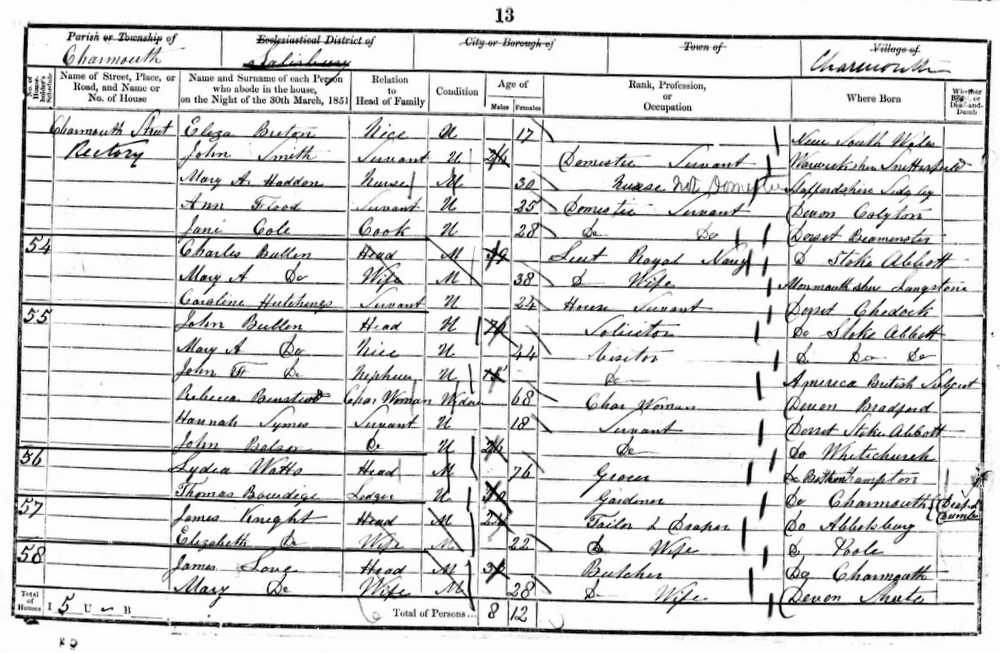 13
Parish or Township of Ecclesiastical District of City or Borough of Town of Village of
Charmouth Salisbury Charmouth
No. of House-holder's Schedule Name of Street, Place, or Road, and Name or No. of House Name and Surname of each Person who abode in the house, on the Night of the 30th March, 1851 Relation to Head of Family Condition Age of Males Females Rank, Profession, or Occupation Where Born Whether Blind, or Deaf-and-Dumb
Charmouth Street Eliza Breton Niece U 17 New South Wales
Rectory John Smith Servant U Domestic Servant Warwickshire Snitterfield
Mary A. Haddon Nurse M 30 Nurse Not Domestic Staffordshire Sedgley
Ann Flood Servant U 25 Domestic Servant Devon Colyton
Jane Cole Cook U 28 Do Do Dorset Beaminster
54 Charles Bullen Head M 59 Lieut Royal Navy D Stoke Abbott
Mary A Do Wife M 38 D Wife Monmouthshire Langstone
Caroline Hutchings Servant U 24 House Servant Dorset Chedock
55 John Bullen Head U Solicitor Do Stoke Abbott
Mary A Do Niece U 44 Visitor D Do Do
John Do Nephew U Do America British Subject
Rebecca Char Woman Widow 68 Char Woman Devon Bradford
Hannah Symes Servant U 18 Servant Dorset Stoke Abbott
John Do U 26 Do Do Whitchurch
56 Lydia Watts Head 76 Grocer Do
Thomas Bowdige Lodger U Gardener Do Charmouth Deaf & Dumb
57 James Knight Head M Tailor & Draper Do Abbotsbury
Elizabeth D Wife M 22 D Wife D Poole
58 James Love Head M Butcher Do Charmouth
Mary D Wife M 28 D Wife Devon Shute
Total of Houses I 5 U – B Total of Persons ... 8 12